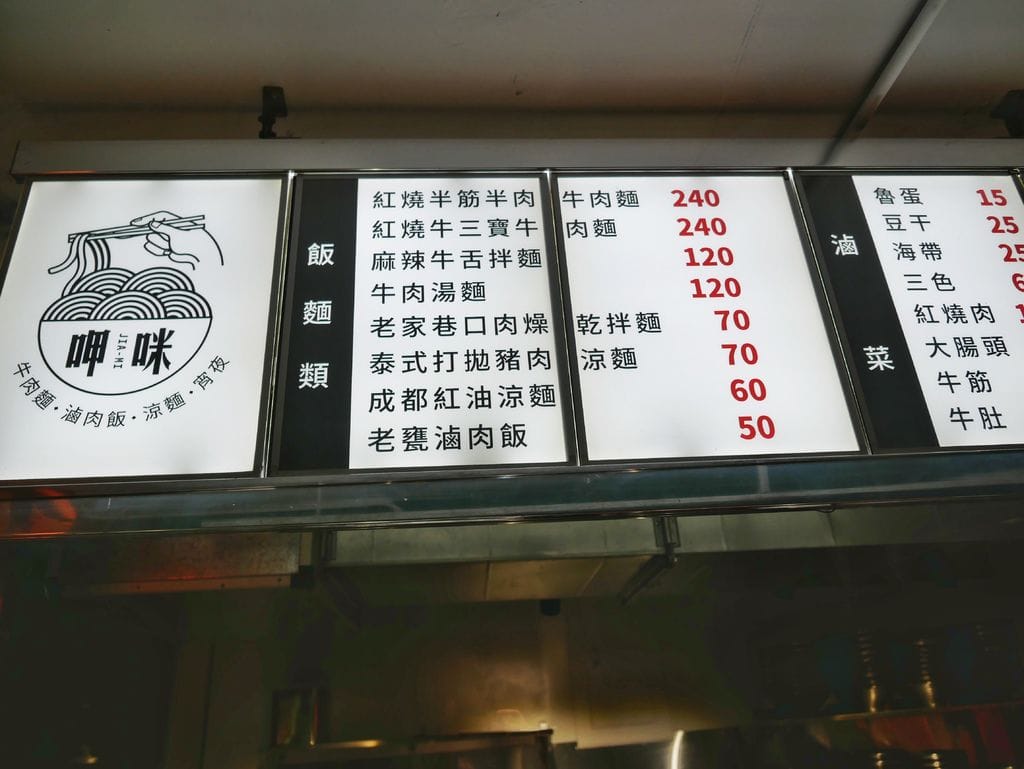 呷咪
JIA-MI
牛肉麵·滷肉飯·涼麵·宵夜
飯麵類
紅燒半筋半肉牛肉麵 240
紅燒牛三寶牛肉麵 240
麻辣牛舌拌麵 120
牛肉湯麵 120
老家巷口肉燥乾拌麵 70
泰式打拋豬肉涼麵 70
成都紅油涼麵 60
老甕滷肉飯 50
滷菜
魯蛋 15
豆干 25
海帶 25
三色
紅燒肉
大腸頭
牛筋
牛肚